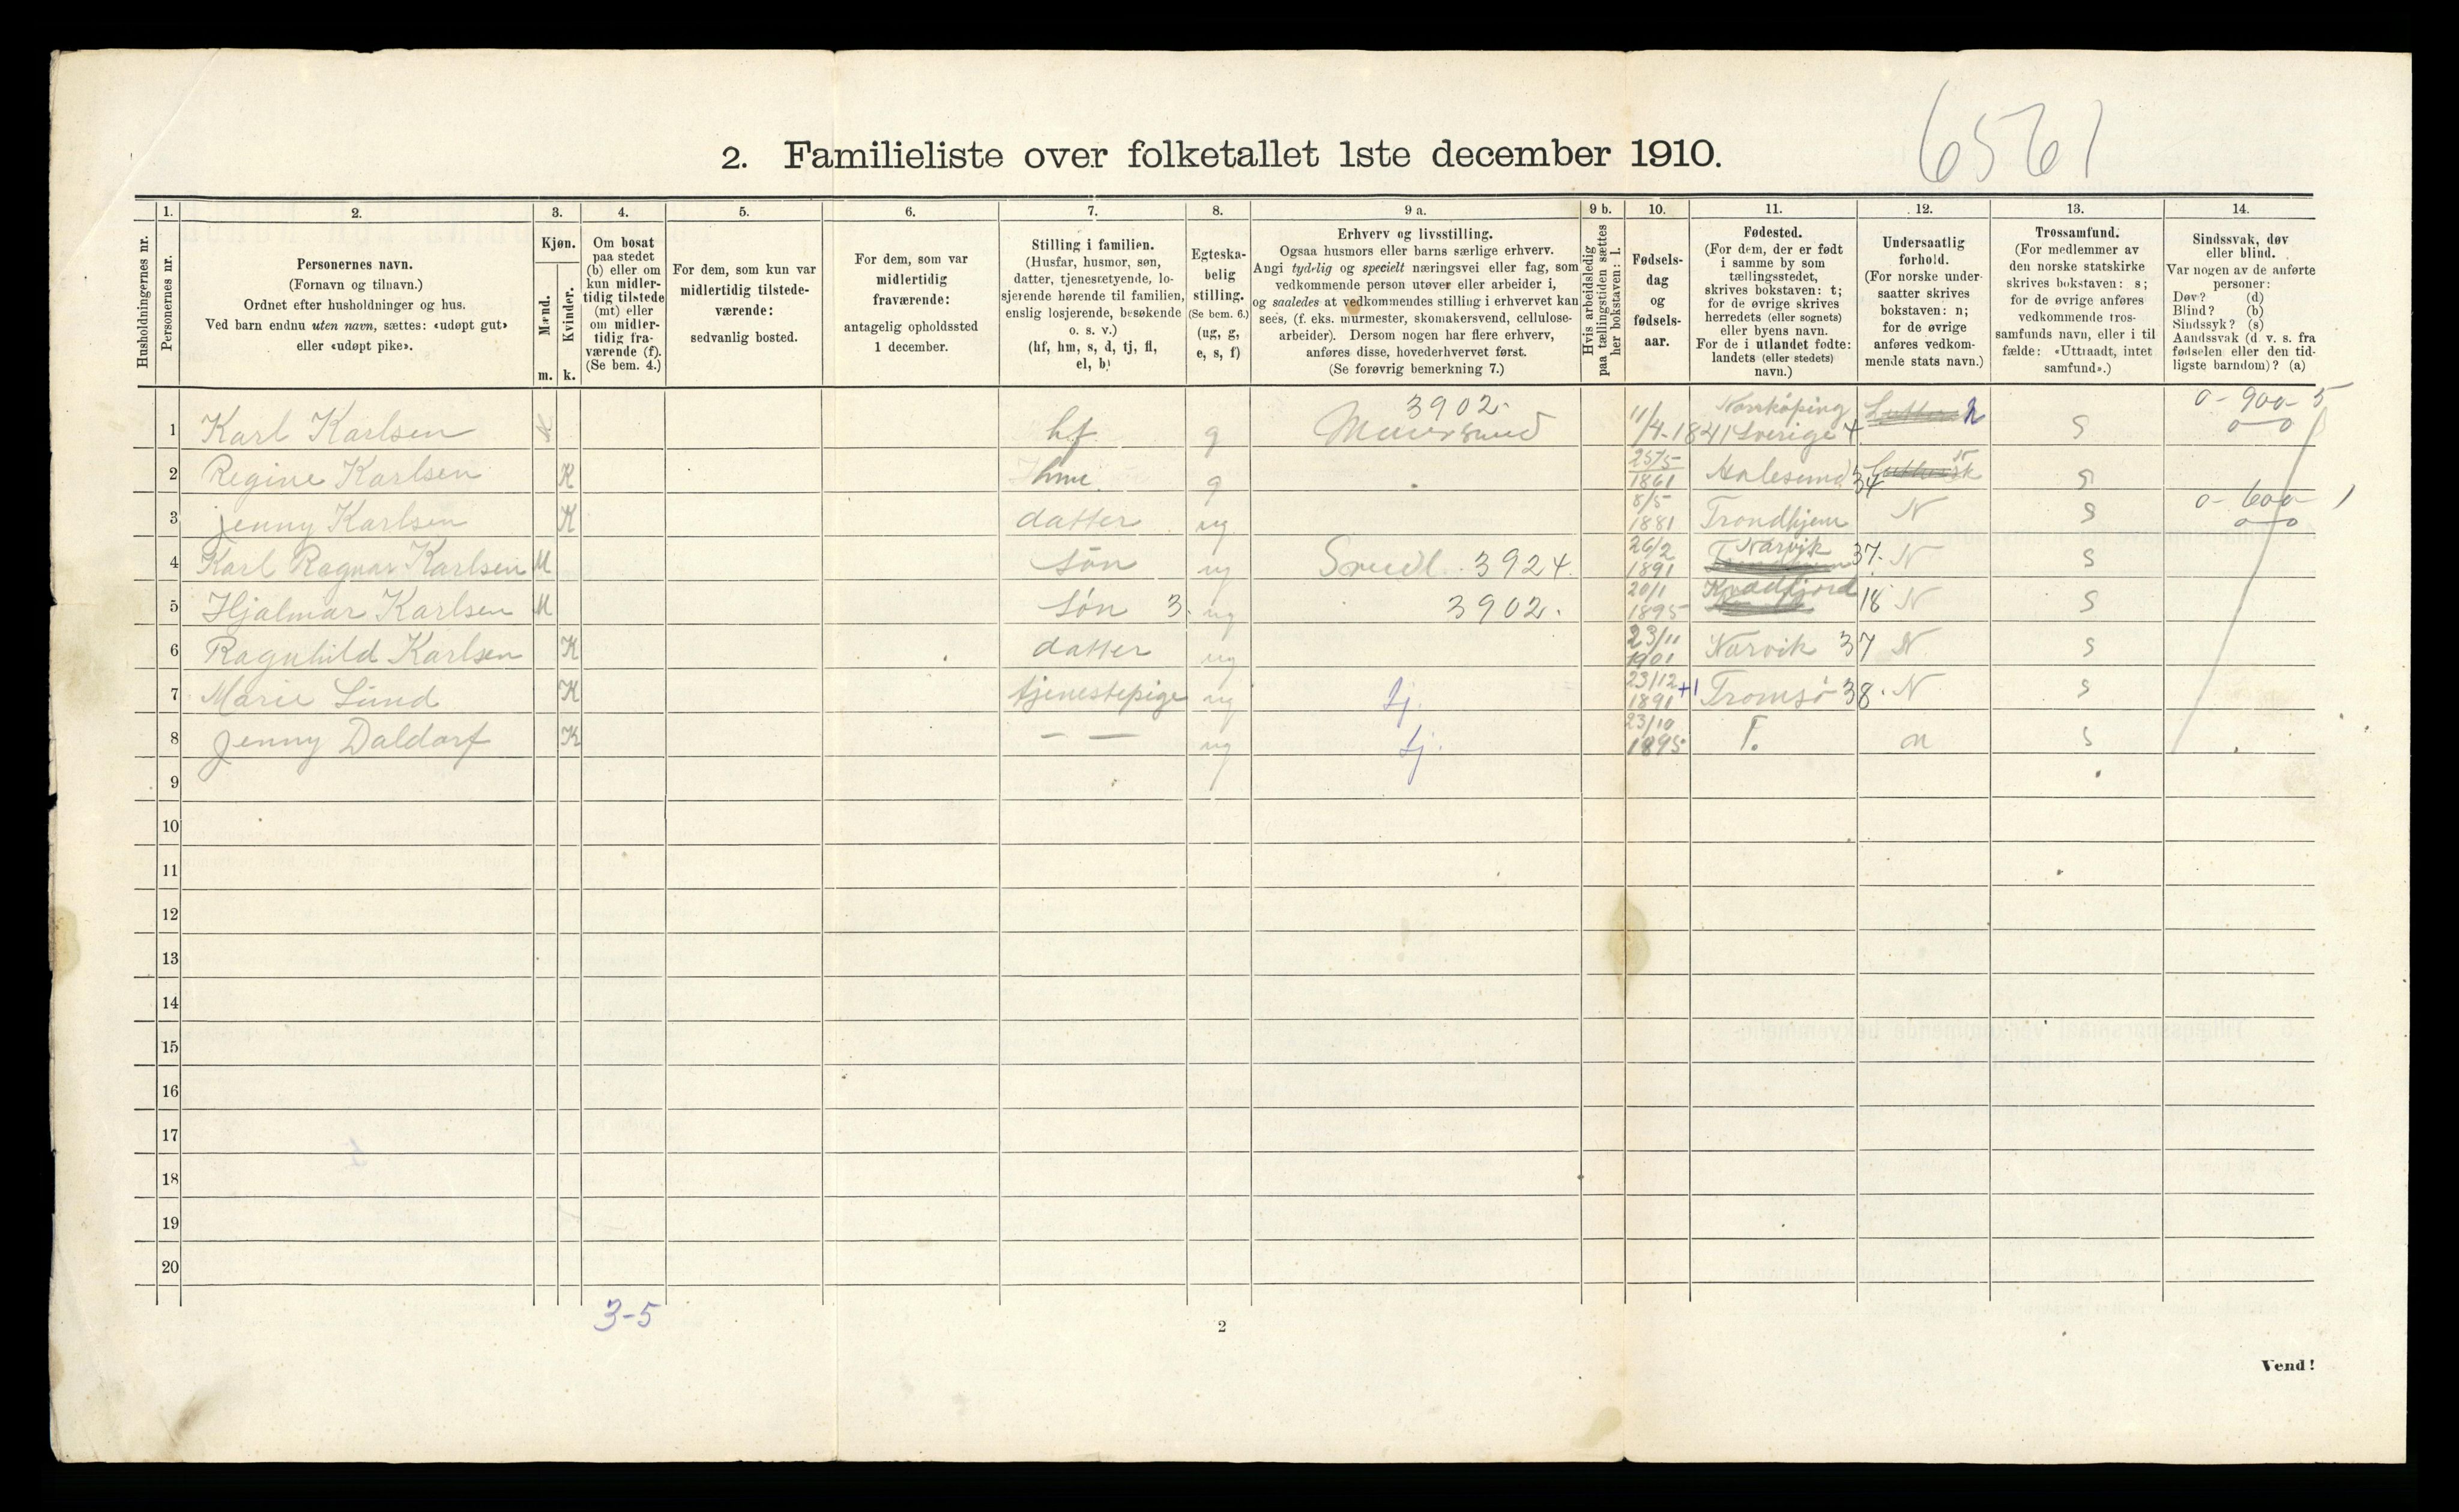 6561
2. Familieliste over folketallet 1ste december 1910.
Husholdningernes nr.
1.
Personernes nr.
2.
Personernes navn.
(Fornavn og tilnavn.)
Ordnet efter husholdninger og hus.
Ved barn endnu uten navn, sættes: «udøpt gut»
eller «udøpt pike».
3.
Kjøn.
Mænd.
Kvinder.
m. k.
4.
Om bosat
paa stedet
(b) eller om
kun midler-
tidig tilstede
(mt) eller
om midler-
tidig fra-
værende (f).
(Se bem. 4.)
5.
For dem, som kun var
midlertidig tilstede-
værende:
sedvanlig bosted.
6.
For dem, som var
midlertidig
fraværende:
antagelig opholdssted
1 december.
7.
Stilling i familien.
(Husfar, husmor, søn,
datter, tjenestetyende, lo-
sjerende hørende til familien,
enslig losjerende, besøkende
o. s. v.)
(hf, hm, s, d, tj, fl,
el, b)
8.
Egteska-
belig
stilling.
(Se bem. 6.)
(ug, g,
e, s, f)
9 a.
Erhverv og livsstilling.
Ogsaa husmors eller barns særlige erhverv.
Angi tydelig og specielt næringsvei eller fag, som
vedkommende person utøver eller arbeider i,
og saaledes at vedkommendes stilling i erhvervet kan
sees, (f. eks. murmester, skomakersvend, cellulose-
arbeider). Dersom nogen har flere erhverv,
anføres disse, hovederhvervet først.
(Se forøvrig bemerkning 7.)
9 b.
Hvis arbeidsledig
paa tællingstiden sættes
her bokstaven: l.
10.
Fødsels-
dag
og
fødsels-
aar.
11.
Fødested.
(For dem, der er født
i samme by som
tællingsstedet,
skrives bokstaven: t;
for de øvrige skrives
herredets (eller sognets)
eller byens navn.
For de i utlandet fødte:
landets (eller stedets)
navn.)
12.
Undersaatlig
forhold.
(For norske under-
saatter skrives
bokstaven: n;
for de øvrige
anføres vedkom-
mende stats navn.)
13.
Trossamfund.
(For medlemmer av
den norske statskirke
skrives bokstaven: s;
for de øvrige anføres
vedkommende tros-
samfunds navn, eller i til
fælde: «Uttraadt, intet
samfund».)
14.
Sindssvak, døv
eller blind.
Var nogen av de anførte
personer:
Døv? (d)
Blind? (b)
Sindssyk? (s)
Aandssvak (d. v. s. fra
fødselen eller den tid-
ligste barndom)? (a)
3902. Norrköping 0-900-5
1 Karl Karlsen hf g 11/4-1841 Sverige 4 n s o-o
2 Regine Karlsen K hm. g 25/5 1861 Aalesund 34 n s
3 Jenny Karlsen K datter ug 8/5 1881 Trondhjem N s 0-600- 1 o-o
4 Karl Ragnar Karlsen M søn ug 3924. 26/2 1891 Narvik 37. N s
5 Hjalmar Karlsen M søn 3. ug 3902. 20/1 1895 Kvædfjord 18 N s
6 Ragnhild Karlsen K datter ug 23/11 1901 Narvik 37 N s
7 Marie Lund K tjenestepige ug tj. 23/12 1891 +1 Tromsø 38. N s
8 Jenny Daldorf K — — ug tj. 23/10 1895 T. n s
9
10
11
12
13
14
15
16
17
18
19
20
3-5
2
Vend!